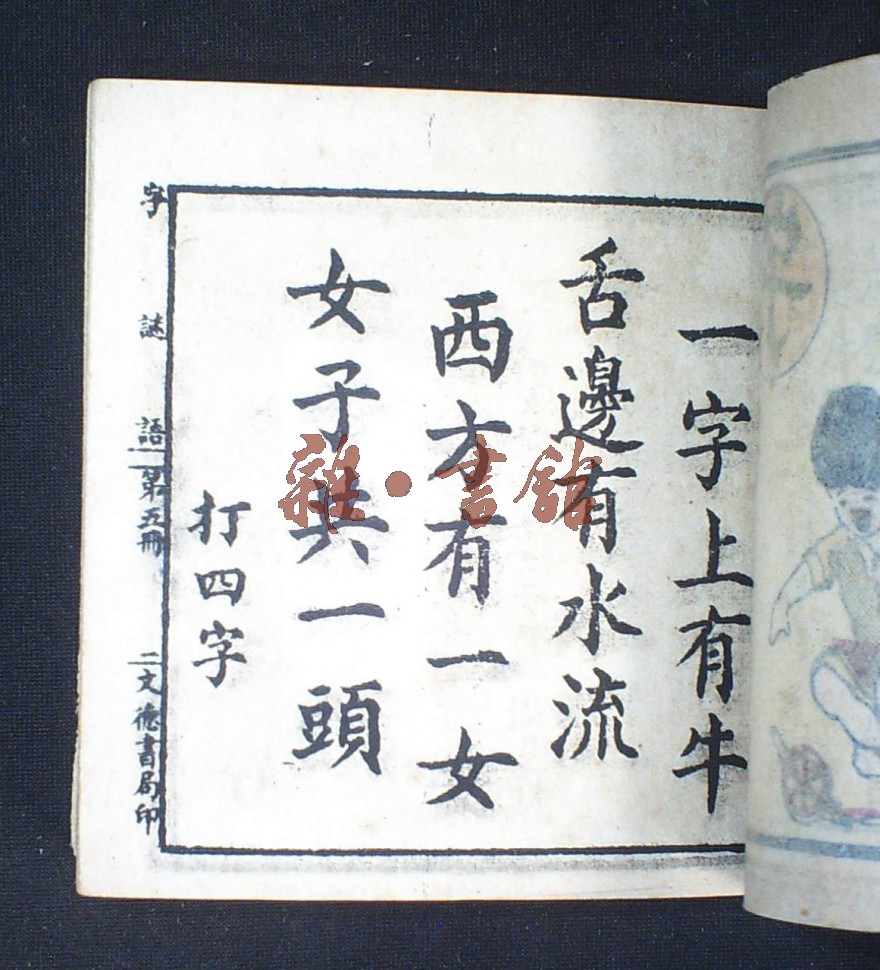 一字上有牛
舌邊有水流
西方有一女
女子共一頭
打四字
字謎語 第五冊 二 文德書局印
雜·書館